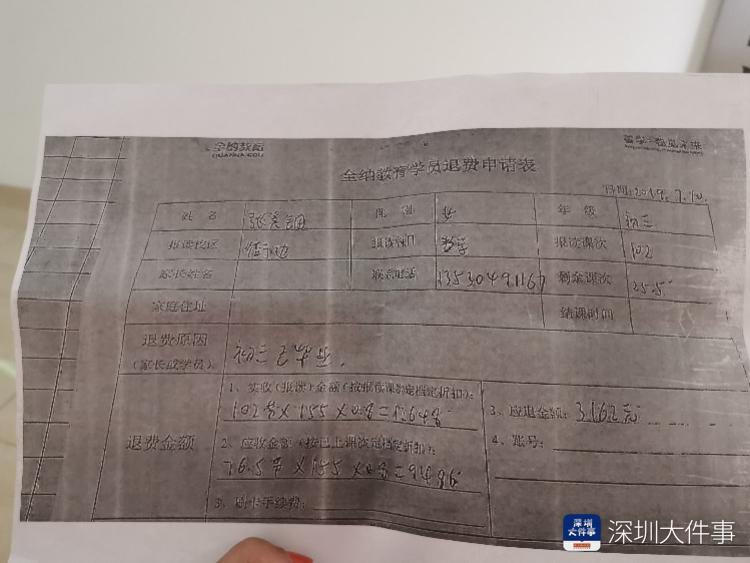 全纳教育
QUANNA EDU
全纳教育学员退费申请表
日期:2019.7.10.
姓名 性别 年级 初三
报读校区 报读科目 数学 报读课次 102
家长姓名 联系电话 剩余课次 25.5
家庭住址 结课时间
退费原因
(家长或学员) 初三已毕业.
退费金额
1、实收(报读)金额(按报读课
102节×155×0.8=12648
2、应收金额(按已上课次定档定折扣):
76.5节×155×0.8=9486
3、刷卡手续费:
3、应退金额: 3162元
4、账号:
深圳大件事
深圳大件事